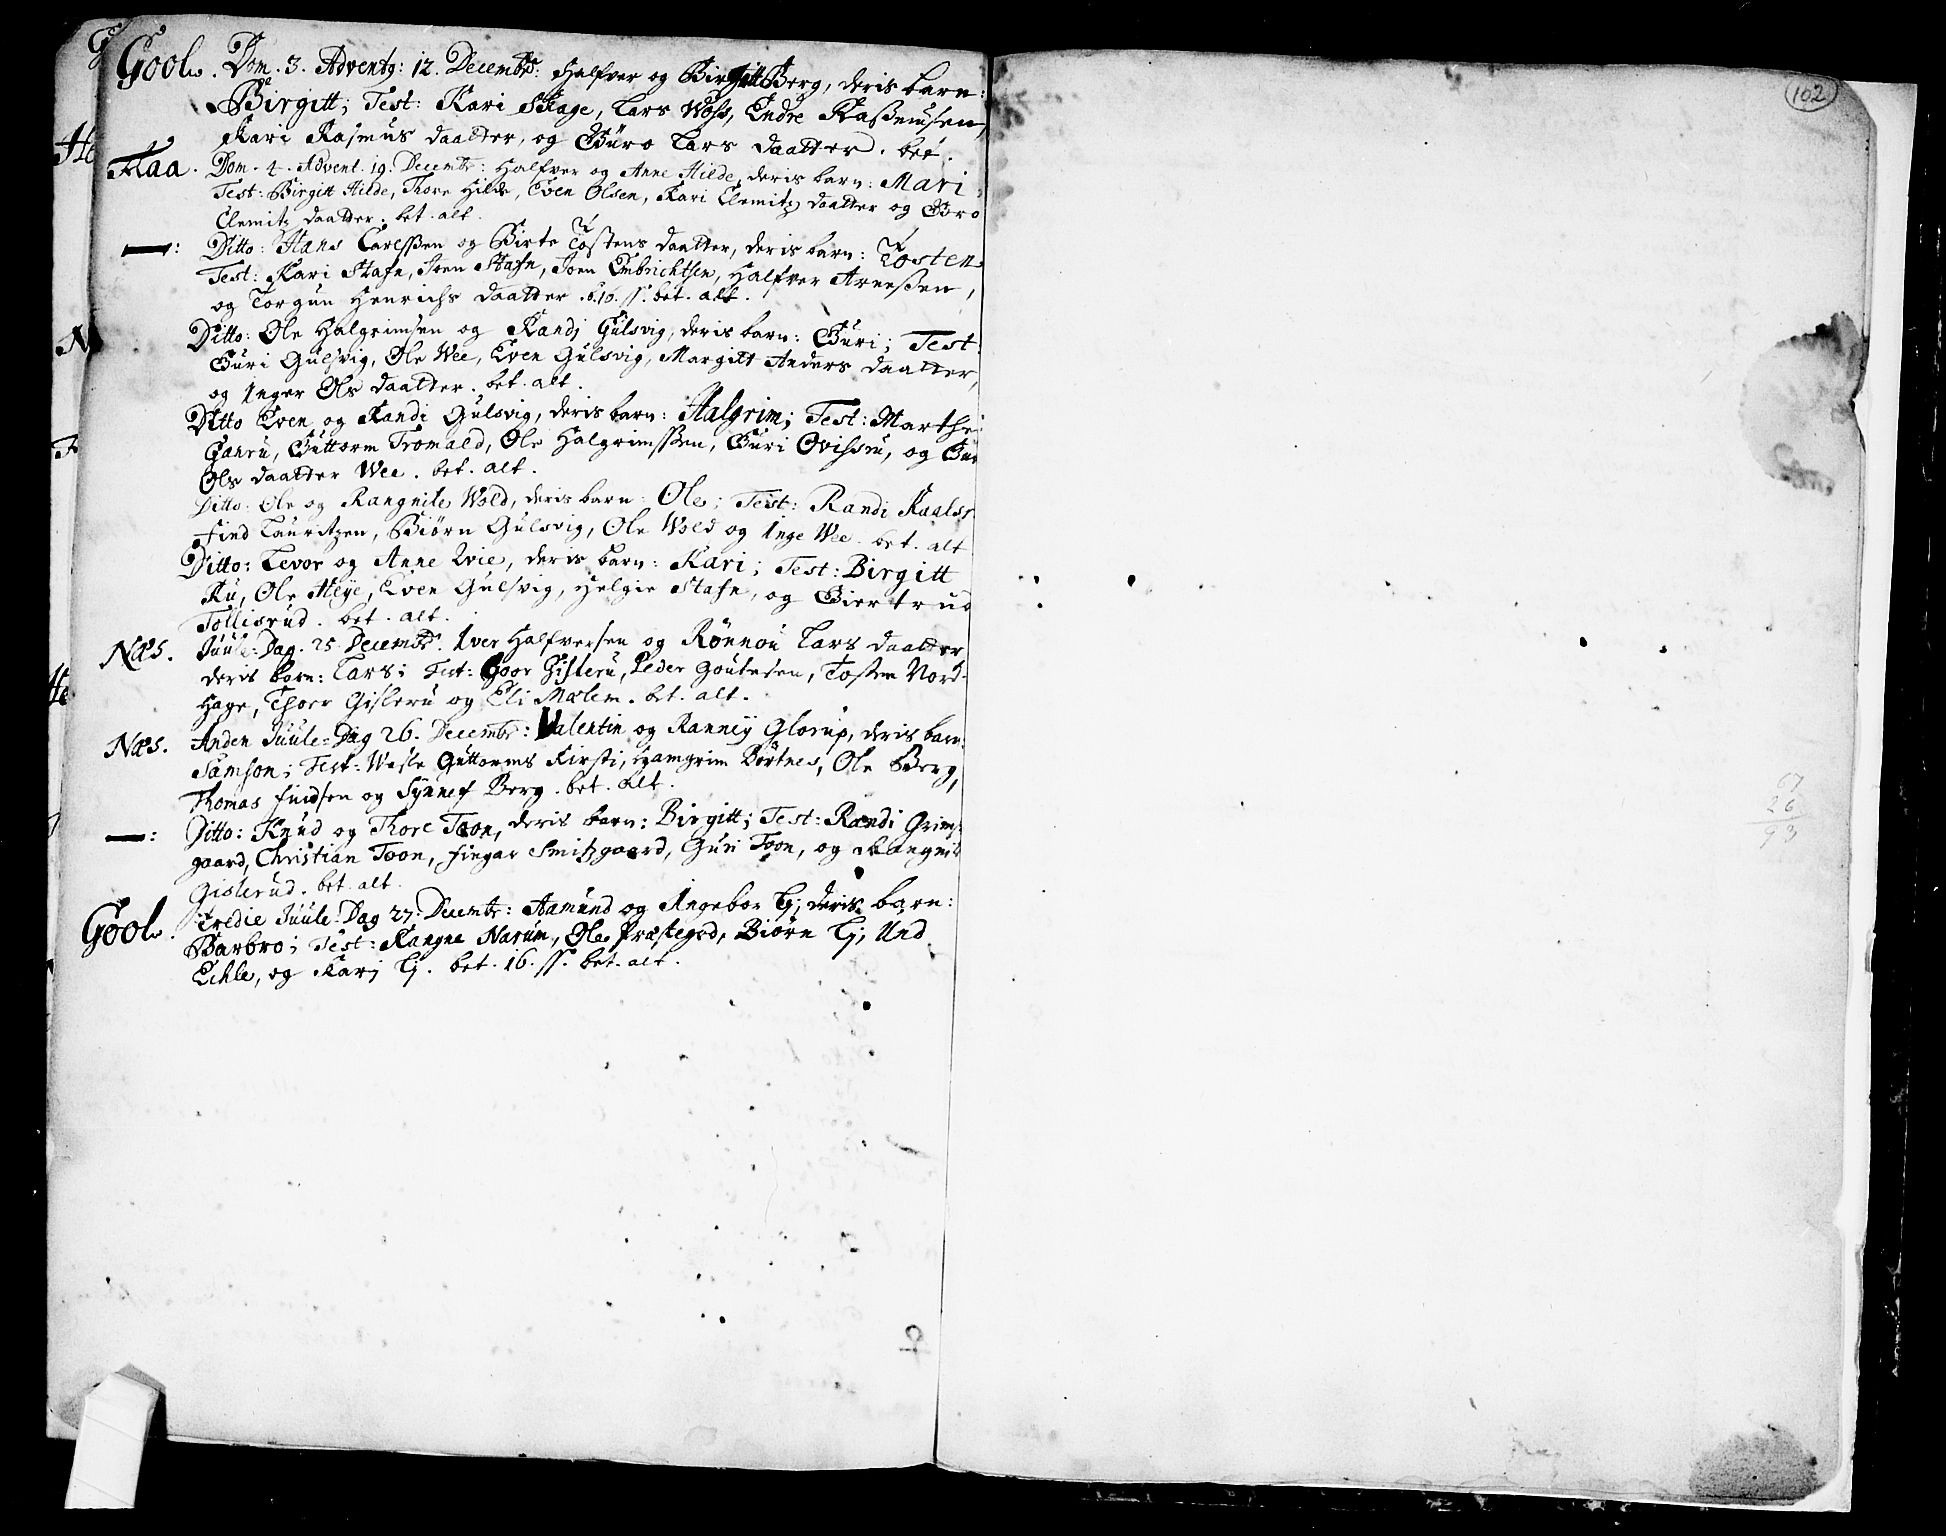 102
Gool. Dom. 3. Adventg: 12. Decembr: Halfver og Birgitt Berg, deris barn:
Birgitt; Test: Kari Skage, Lars Woss, Endre Rasmusen,
Kari Rasmus daatter, og Guro Lars daatter. bet.
Flaa. Dom. 4. Advent. 19. Decembr: Halfver og Anne Hilde, deris barn: Mari;
Test: Birgitt Hilde, Thore Hilde, Even Olsen, Kari Clemitz daatter og Gro
Clemitz daatter. bet. alt.
—: Ditto: Hans Carlssen og Birte Tostens daatter, deris barn: Tosten
Test: Kari Stafn, Joen Stafn, Joen Embrichtsen, Halfver Arnessen,
og Torgun Henrichs daatter. b. 16. ss. bet. alt.
Ditto: Ole Halgrimsen og Randj Gulsvig, deris barn: Guri; Test:
Guri Gulsvig, Ole Wee, Even Gulsvig, Margitt Anders daatter,
og Inger Ols daatter. bet. alt.
Ditto Even og Randi Gulsvig, deris barn: Halgrim; Test: Marthe
Guttorm Tromald, Ole Halgrimssen, Guri og
Ols daatter Wee. bet. alt.
Ditto: Ole og Rangnile Wold, deris barn: Ole; Test: Randi
Find Lauritzen, Biørn Gulsvig, Ole Wold og Inge Wee. bet. alt
Ditto: Levor og Anne deris barn: Kari; Test: Birgitt
Ru, Ole Heye, Even Gulsvig, Helgie Stafn, og Giertrud
Tollisrud. bet. alt.
Næs. Juule-Dag. 25 Decembr. Iver Halfversen og Rønnou Lars daatter
deris barn: Lars; Test: Goor Gisleru, Peder Goutesen, Tosten Nord-
Hage, Thoer Gisleru og Eli Mælem. bet. alt.
Næs. Anden Juule-Dag 26. Decembr: Valentin og Ranney Glorup, deris barn:
Samson; Test: Wesle Guttorms Kirsti, Hamgrim Børtnes, Ole Berg,
Thomas og Synnef Berg. bet. alt.
—: Ditto: Knud og Thore Toon, deris barn: Birgitt; Test: Randi Grims-
gaard, Christian Toon, Fingar Smitzgaard, Guri Toon, og Rangnil
Gislerud. bet. alt.
Gool. Tredie Juule-Dag 27. Decembr: Aamund og Ingebor Lj; deris barn:
Barbro; Test: Rangne Narum, Ole Præstegrd, Biørn Lj; Und
Echle, og Karj Lj. bet. 16. ss. bet. alt.
67
26
93